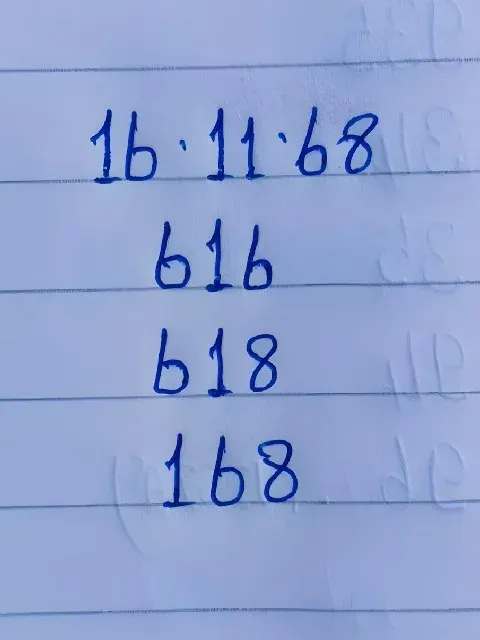 16·11·68
616
618
168